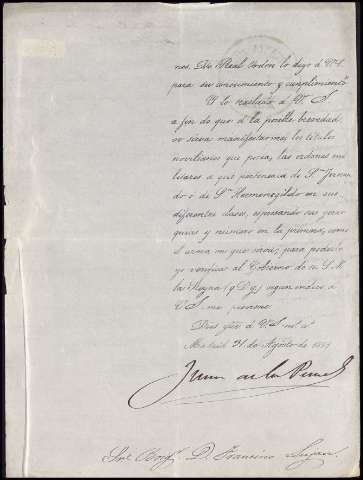 nes. De Real orden lo digo á V.S.
para su conocimiento y cumplimiento
Y lo traslado á V. S.
a fin de que á la posible brevedad
se sirva manifestarme los titulos
noviliarios que posea, las ordenes mi
litares a que pertenezca de Sn. Fernan
do ó de Sn. Hermenegildo en sus
diferentes clases, espresando sus gerar
quias y numero en la primera, como
el arma en que sirvió; para poderlo
yo verificar al Gobierno de S. M.
la Reyna (q D. g.) segun indica á
V. S. me previene.
Dios gue á V. S. ms. as.
Madrid 31 de Agosto de
Juan de la
Sor. Brigr. D. Francisco Lujan.